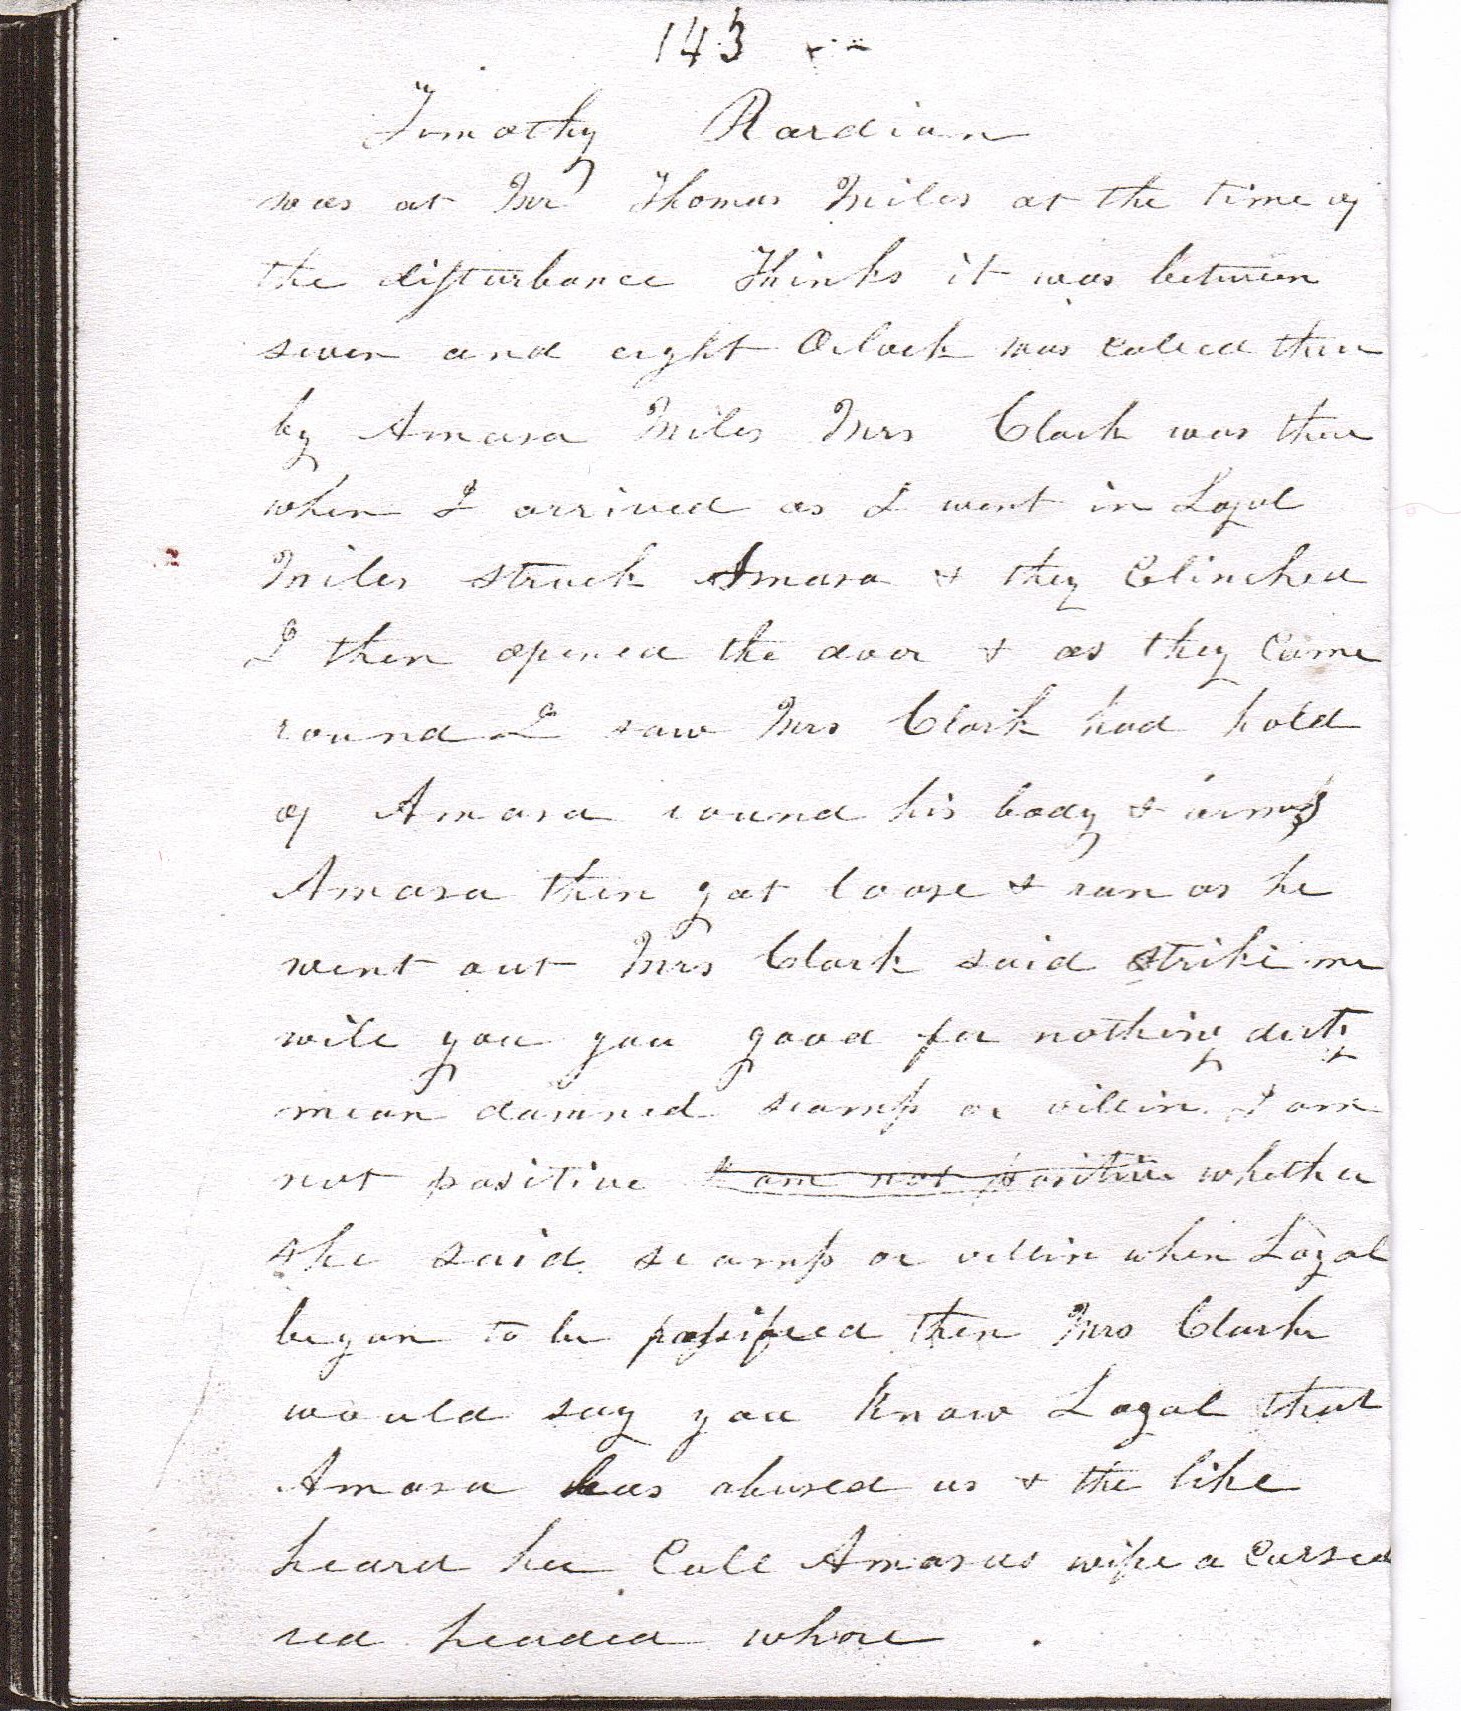 143
Timothy Rardian
was at Mr Thomas Miles at the time of
the disturbance Thinks it was between
seven and eight Oclock was called there
by Amasa Miles Mrs Clark was there
when I arrived as I went in Loyal
Miles struck Amasa & they Clinched
I then opened the door & as they Came
round I saw Mrs Clark had hold
of Amasa round his body & arms
Amasa then got loose & ran as he
went out Mrs Clark said strike me
will you you good for nothing dirty
mean damned scamp or villin. I am
not positive I am not positive whether
she said scamp or villin when Loyal
began to be passified then Mrs Clark
would say you Know Loyal that
Amasa has abused us & the like
heard her Call Amasas wife a Cursed
red headed whore .